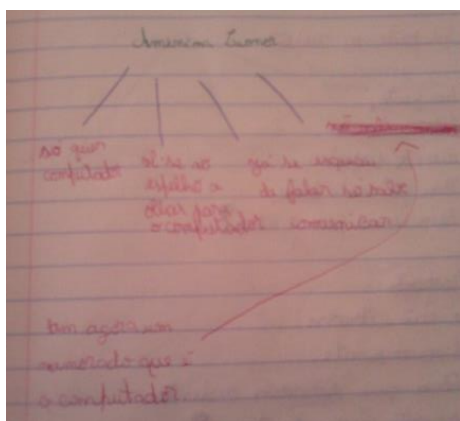 A menina
só quer
computador
vê-se ao
espelho a
olhar para
o computador
já se esqueceu
de falar só sabe
comunicar
tem agora um
namorado que é
o computador